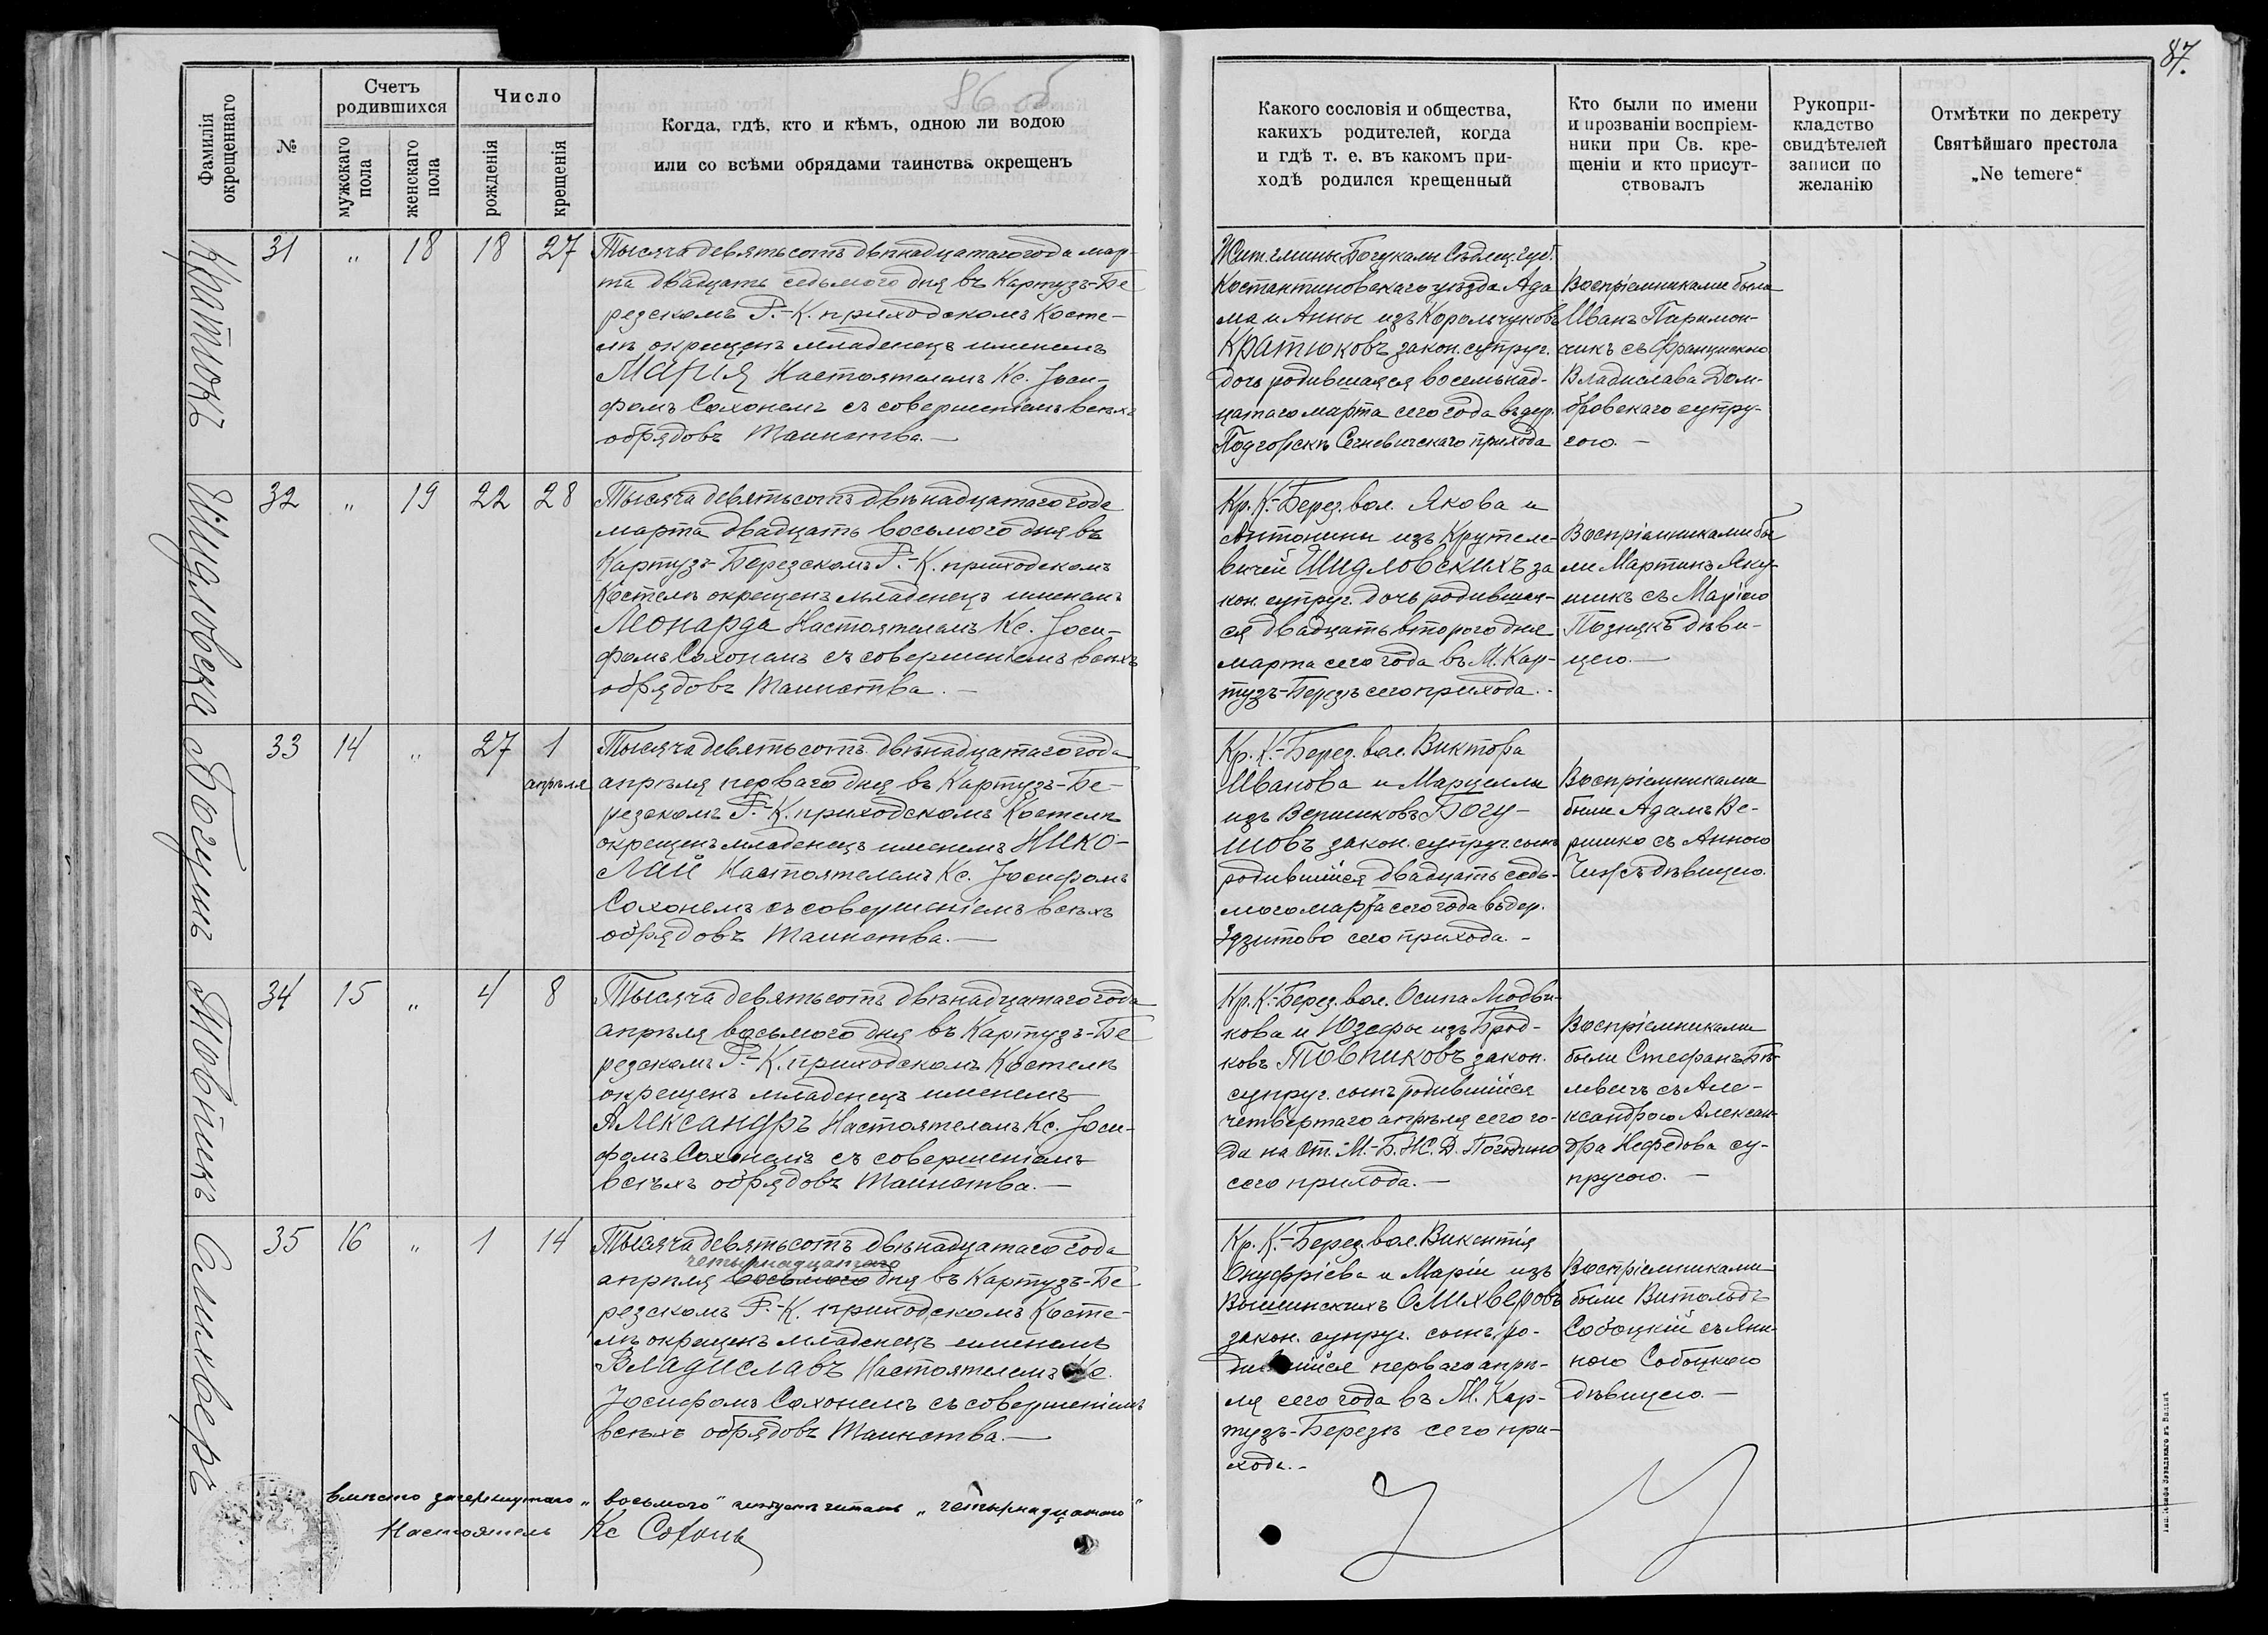 86 об
87.
Фамилія
окрещеннаго
№
Счетъ
родившихся
мужскаго
пола
женскаго
пола
Число
рожденія
крещенія
Когда, гдѣ, кто и кѣмъ, одною ли водою
или со всѣми обрядами таинства окрещенъ
Какого сословія и общества,
какихъ родителей, когда
и гдѣ т. е. въ какомъ при-
ходѣ родился крещенный
Кто были по имени
и прозванію воспріем-
ники при Св. кре-
щеніи и кто присут-
ствовалъ
Рукопри-
кладство
свидѣтелей
записи по
желанію
Отмѣтки по декрету
Святѣйшаго престола
„Ne temere“
Кратюкъ
31 „ 18 18 27
Тысяча девятьсотъ двѣнадцатаго года мар-
та двадцать седьмого дня въ Картузъ-Бе
резскомъ Р.-К. приходскомъ Косте-
лѣ окрещенъ младенецъ именемъ
Марія Настоятелемъ Кс. Іоси-
фомъ Сохонемъ съ совершеніемъ всѣхъ
обрядовъ Таинства.—
Жит. гмины Богукалы Сѣдлец. губ.
Костантиновскаго уѣзда Ада
ма и Анны изъ Корольчуковъ
Кратюковъ закон. супруг.
дочь родившаяся восемьнад-
цатаго марта сего года въ дер.
Подгорскъ Сегневичскаго прихода
Воспріемниками были
Иванъ Паримон-
чикъ съ Францишкою
Владислава Дом-
бровскаго супру-
гою.—
Шидловска
32 „ 19 22 28
Тысяча девятьсотъ двѣнадцатаго года
марта двадцать восьмого дня въ
Картузъ-Березскомъ Р.-К. приходскомъ
Костелѣ окрещенъ младенецъ именемъ
Леонарда Настоятелемъ Кс. Іоси-
фомъ Сохонемъ съ совершеніемъ всѣхъ
обрядовъ Таинства.—
Кр. К.-Берез. вол. Якова и
Антонины изъ Крутеле-
вичей Шидловскихъ за
кон. супруг. дочь родившая-
ся двадцать второго дня
марта сего года въ М. Кар-
тузъ-Березѣ сего прихода.-
Воспріемниками бы
ли Мартинъ Яку-
шикъ съ Маріею
Познякъ дѣви-
цею.—
Богушъ
33 14 „ 27 1
апрѣля
Тысяча девятьсотъ двѣнадцатаго года
апрѣля перваго дня въ Картузъ-Бе-
резскомъ Р.-К. приходскомъ Костелѣ
окрещенъ младенецъ именемъ Нико-
лай Настоятелемъ Кс. Іосифомъ
Сохонемъ съ совершеніемъ всѣхъ
обрядовъ Таинства.—
Кр. К.-Берез. вол. Виктора
Иванова и Марцели
изъ Вершиковъ Богу-
шовъ закон. супруг. сынъ
родившійся двадцать седь-
мого марта сего года въ дер.
Здзитово сего прихода.-
Воспріемниками
были Адамъ Ве-
ршико съ Анною
Чижъ дѣвицею.
Товпикъ
34 15 „ 4 8
Тысяча девятьсотъ двѣнадцатаго года
апрѣля восьмого дня въ Картузъ-Бе
резскомъ Р.-К. приходскомъ Костелѣ
окрещенъ младенецъ именемъ
Александръ Настоятелемъ Кс. Іоси-
фомъ Сохонемъ съ совершеніемъ
всѣхъ обрядовъ Таинства.—
Кр. К.-Берез. вол. Осипа Людви-
кова и Юзефы изъ Брод-
ковъ Товпиковъ закон.
супруг. сынъ родившійся
четвертаго апрѣля сего го-
да на ст. М.-Б. Ж. Д. Погодино
сего прихода.—
Воспріемниками
были Стефанъ Бѣ-
левичъ съ Але-
ксандрою Алексан-
дра Нефедова су-
пругою.—
Олихверъ
35 16 „ 1 14
Тысяча девятьсотъ двѣнадцатаго года
четырнадцатаго
апрѣля восьмого дня въ Картузъ-Бе
резскомъ Р.-К. приходскомъ Косте-
лѣ окрещенъ младенецъ именемъ
Владиславъ Настоятелемъ Кс.
Іосифомъ Сохонемъ съ совершеніемъ
всѣхъ обрядовъ Таинства.—
Кр. К.-Берез. вол. Викентія
Онуфріева и Маріи изъ
Вышинскихъ Олихверовъ
закон. супруг. сынъ, ро-
дившійся перваго апрѣ-
ля сего года въ М. Кар-
тузъ-Березѣ сего при-
хода.-
Воспріемниками
были Витольдъ
Собоцкій съ Яни-
ною Собоцкою
дѣвицею.—
Вмѣсто зачеркнутаго „восьмого“ слѣдуетъ читать „четырнадцатаго“
Настоятель Кс Сохонь